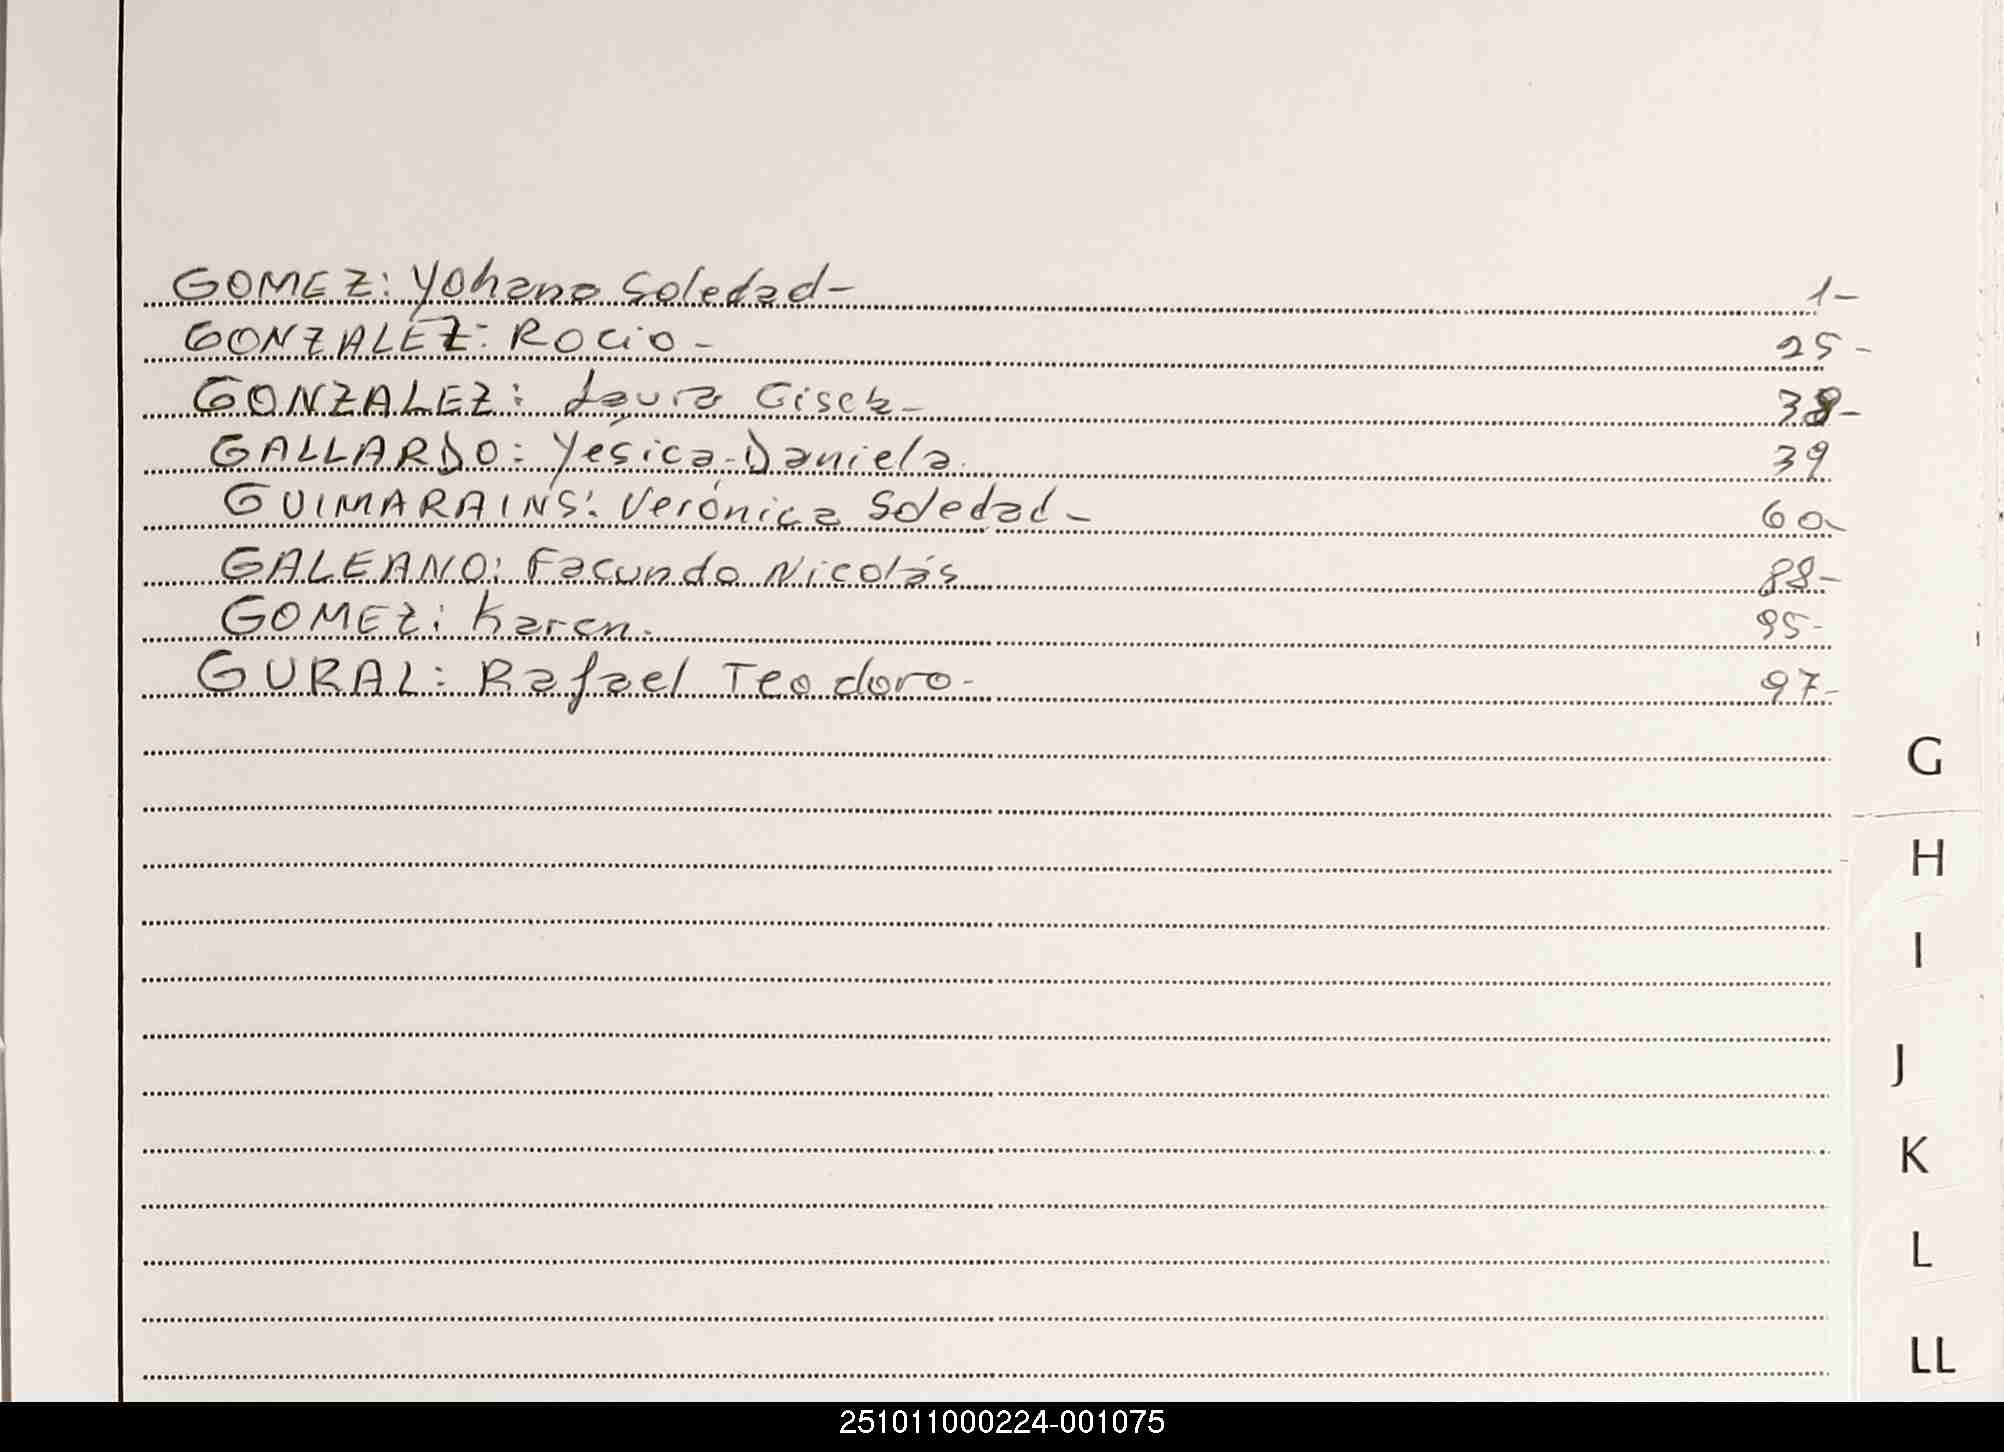 GOMEZ: Yohana Soledad- 1-
GONZALEZ: Rocio- 25-
GONZALEZ: Laura Gisela- 38-
GALLARDO: Yésica Daniela. 39
GUIMARAINS: Verónica Soledad- 60-
GALEANO: Facundo Nicolás 88-
GOMEZ: Karen. 95-
GURAL: Rafael Teodoro- 97-
G
H
I
J
K
L
LL
251011000224-001075